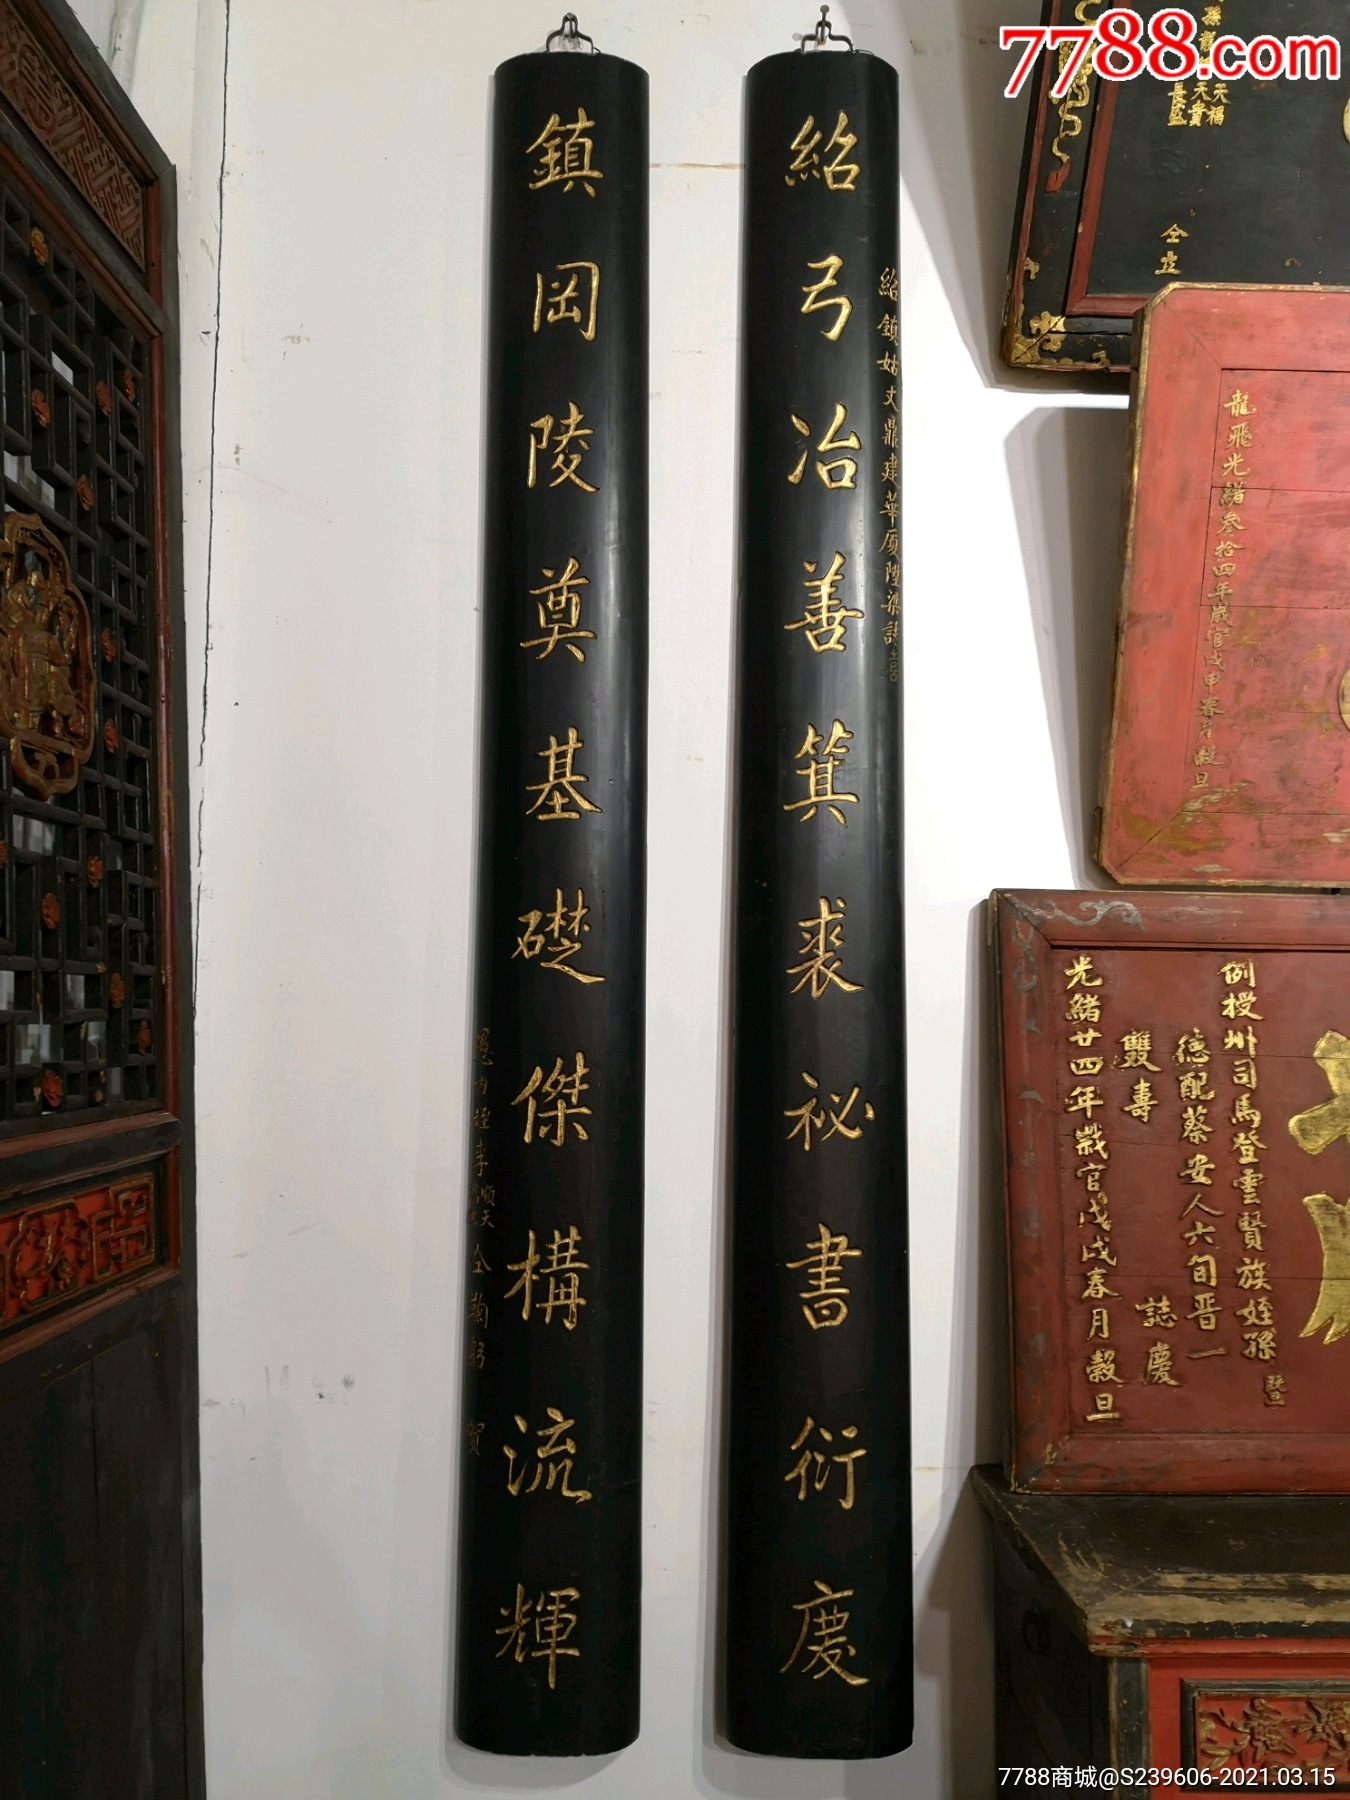 7788.com
紹弓冶善箕裘祕書衍慶
紹鎮姑丈鼎建華厦陞梁誌喜
鎮岡陵奠基礎傑構流輝
愚內姪李順天
仝鞠躬 賀
仝立
龍飛光緒叁拾四年歲官戊申春月穀旦
例授州司馬登雲賢族姪孫暨
德配蔡安人六旬晋一
雙壽
誌慶
光緒廿四年歲官戊戌春月穀旦
7788商城@S239606-2021.03.15